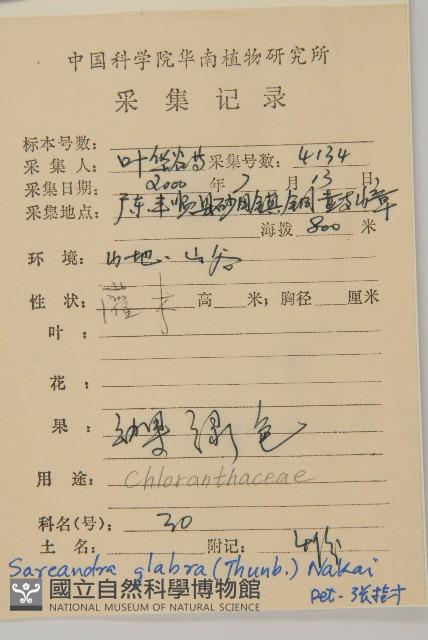 中国科学院华南植物研究所
采 集 记 录
标本号数:
采 集 人: 叶华谷 采集号数: 4134
采集日期: 2000 年 7 月 13 日,
采集地点: 广东丰顺县砂田镇
海拨 800 米
环 境: 山地、山谷
性 状: 灌木 高 米; 胸径 厘米
叶 :
花 :
果 : 幼果绿色
用 途: Chloranthaceae
科名(号): 30
土 名: 附记:
Sarcandra glabra (Thunb.) Nakai
Det.
國立自然科學博物館
NATIONAL MUSEUM OF NATURAL SCIENCE